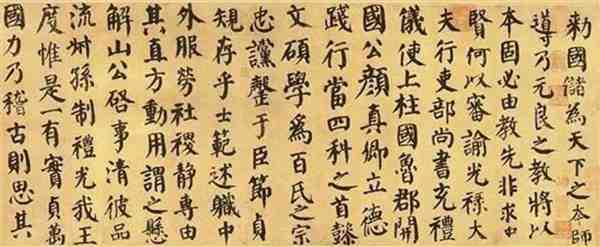 勑國儲為天下之本師
導乃元良之教將以
本固必由教先非求中
賢何以審諭光祿大
夫行吏部尚書充禮
儀使上柱國魯郡開
國公顏真卿立德
踐行當四科之首懿
文碩學爲百氏之宗
忠讜罄于臣節貞
規存乎士範述職中
外服勞社稷靜專由
其直方動用謂之懸
解山公啓事清彼品
流叔孫制禮光我王
度惟是一有實貞萬
國力乃稽古則思其